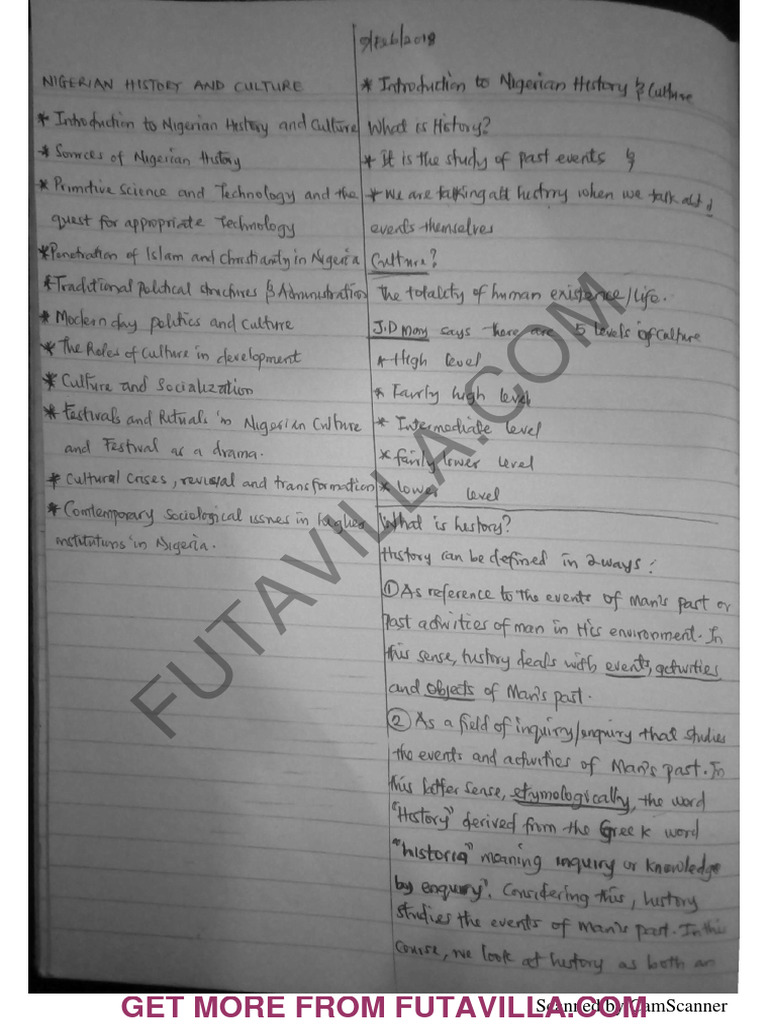 9/Feb/2018
NIGERIAN HISTORY AND CULTURE
* Introduction to Nigerian History and Culture
* Sources of Nigerian History
* Primitive Science and Technology and the
quest for appropriate Technology
* Penetration of Islam and Christianity in Nigeria
* Traditional political structures & Administration
* Modern day politics and Culture
* The Roles of Culture in development
* Culture and Socialization
* Festivals and Rituals in Nigerian Culture
and Festival as a drama.
* Cultural Crises, revival and transformation
* Comtemporary Sociological issues in higher
institutions in Nigeria.
* Introduction to Nigerian History & Culture
What is History?
* It is the study of past events &
* We are talking abt history when we talk abt d
events themselves
Culture?
The totality of human existence/life.
J.D says there are 5 levels of culture
* High level
* Fairly high level
* Intermediate level
* fairly lower level
* lower level
What is history?
History can be defined in 2ways:
① As reference to the events of Man's past or
Past activities of man in His environment. In
this sense, history deals with events, activities
and objects of Man's past.
② As a field of inquiry/enquiry that studies
the events and activities of Man's past. In
this latter sense, etymologically, the word
"History" derived from the Greek word
"historia" meaning inquiry or knowledge
by enquiry". Considering this, history
studies the events of man's past. In this
course, we look at history as both an
FUTAVILLA.COM
GET MORE FROM FUTAVILLA.COM
Scanned by CamScanner